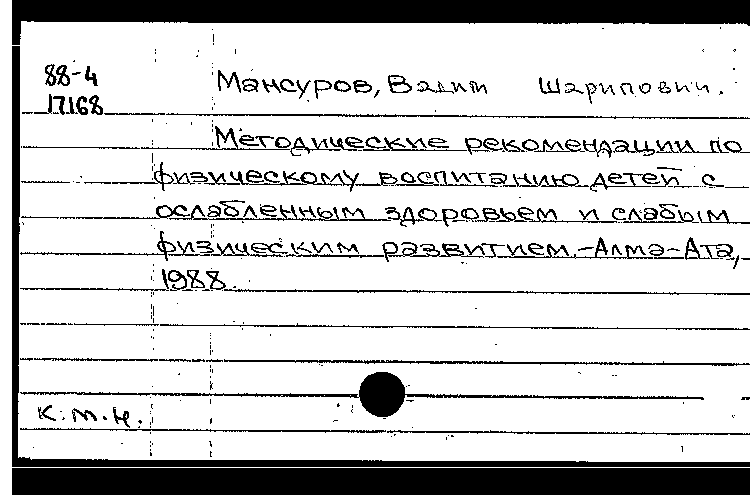 88-4
17168
Мансуров, Вадим Шарипович.
Методические рекомендации по
физическому воспитанию детей с
ослабленным здоровьем и слабым
физическим развитием.-Алма-Ата,
1988.
К.м.н.